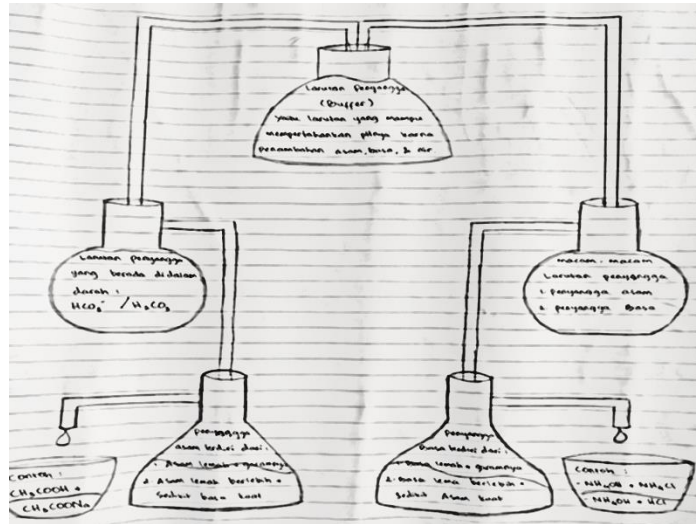 Larutan penyangga
(Buffer)
yaitu larutan yang mampu
mempertahankan pHnya karna
penambahan asam, basa, & air
Larutan penyangga
yang berada didalam
darah :
HCO₃⁻ / H₂CO₃
macam-macam
Larutan penyangga
1. penyangga asam
2. penyangga Basa
penyangga
asam terdiri dari:
1. Asam lemah + garamnya
2. Asam lemah berlebih +
sedikit basa kuat
penyangga
Basa terdiri dari:
1. Basa lemah + garamnya
2. Basa lema berlebih +
sedikit Asam kuat
Contoh :
CH₃COOH +
CH₃COONa
Contoh :
- NH₄OH + NH₄Cl
- NH₄OH + HCl